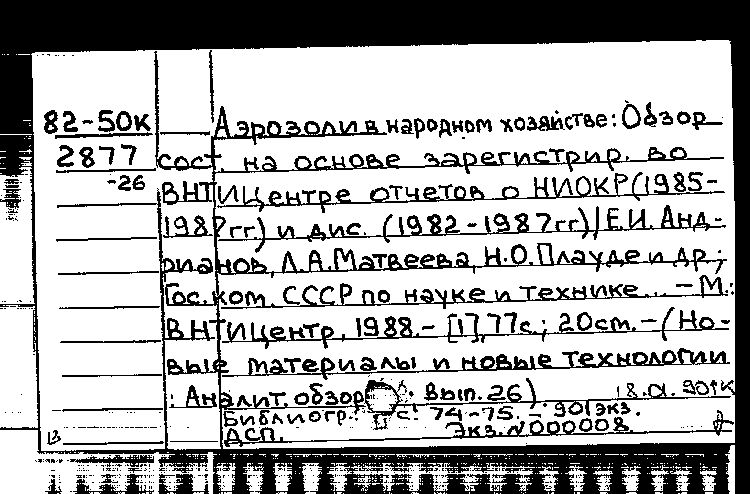 82-50к Аэрозоли в народном хозяйстве: Обзор
2877 сост. на основе зарегистрир. во
-26 ВНТИЦентре отчетов о НИОКР(1985-
1987гг) и дис. (1982-1987гг)/Е.И. Анд-
рианов, Л.А.Матвеева, Н.О.Плауде и др.;
Гос.ком. СССР по науке и технике... – М.:
ВНТИЦентр, 1988.- [1],77с.; 20см. – (Но-
вые материалы и новые технологии
: Аналит. обзор Вып. 26) 18.01.901К
Библиогр.: с. 74-75. – 901экз.
ДСП. Экз.N000008
13